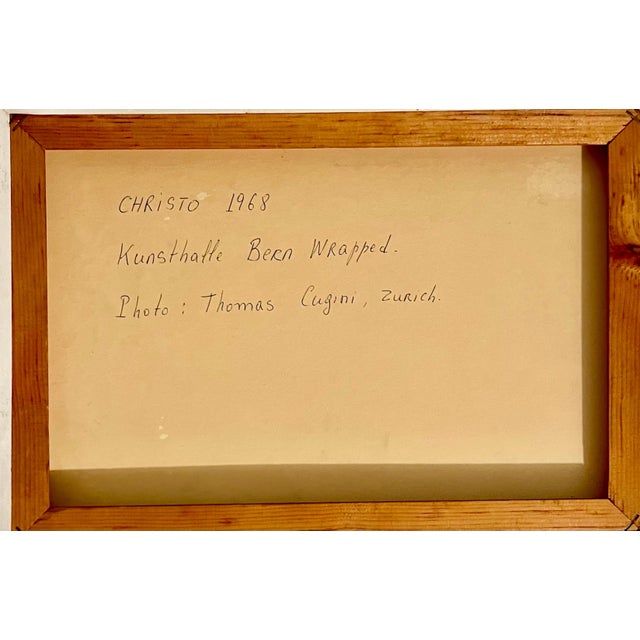 CHRISTO 1968
Kunsthalle Bern Wrapped.
Photo: Thomas Cugini, Zurich.